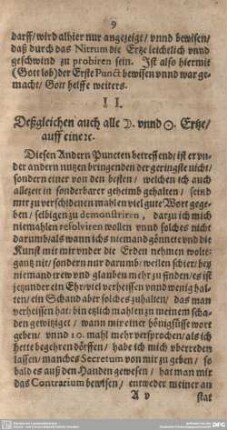 9
darff/ wird alhier nur angezeigt/ vnnd bewisen/
daß durch das Nitrum die Ertze leichtlich vnnd
geschwind zu probiren sein. Ist also hiermit
(Gott lob) der Erste Punct bewisen vnnd war ge-
macht/ Gott helffe weiters.
II.
Deßgleichen auch alle ☽. vnnd ☉. Ertze/
auff eine ꝛc.
Diesen Andern Puncten betreffend/ ist er vn-
der andern nutzen bringenden der geringste nicht/
sondern einer von den besten/ welchen ich auch
allezeit in sonderbarer geheimb gehalten/ seind
mir zu verschidenen mahlen viel gute Wort gege-
ben/ selbigen zu demonstriren, darzu ich mich
niemahlen resolviren wollen vnnd solches nicht
darumb/ als wann ichs niemand gönnete vnd die
Kunst mit mir vnder die Erden nehmen wolte:
gantz nit/ sondern nur darumb/ weilen schier bey
niemand trew vnd glauben mehr zu finden/ es ist
jetzunder ein Ehr viel verheissen vnd wenig hal-
ten/ ein Schand aber solches zuhalten/ das man
verheissen hat/ bin etzlich mahlen zu meinem scha-
den gewitziget/ wann mir einer hönigsüsse wort
geben/ vnnd 10. mahl mehr versprochen/ als ich
hette begehren dörffen/ habe ich mich vberreden
lassen/ manches Secretum von mir zu geben/ so
bald es auß den Handen gewesen/ hat man mir
das Contrarium bewisen/ entweder meiner an
A v
stat